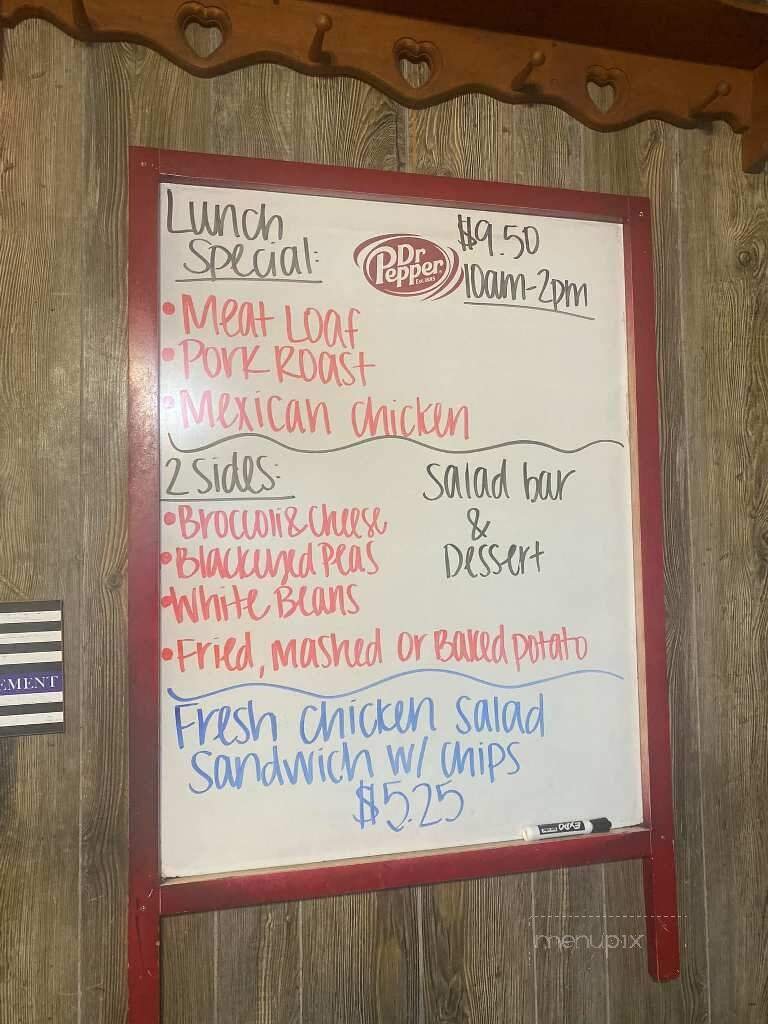 Lunch
Special:
Dr
Pepper
$9.50
10am-2pm
• Meat Loaf
• Pork Roast
• Mexican chicken
2 sides:
• Broccoli & Cheese
• Blackeyed Peas
• White Beans
• Fried, mashed or Baked potato
Salad bar
&
Dessert
Fresh chicken salad
sandwich w/ chips
$5.25
EXPO
EMENT
menupix